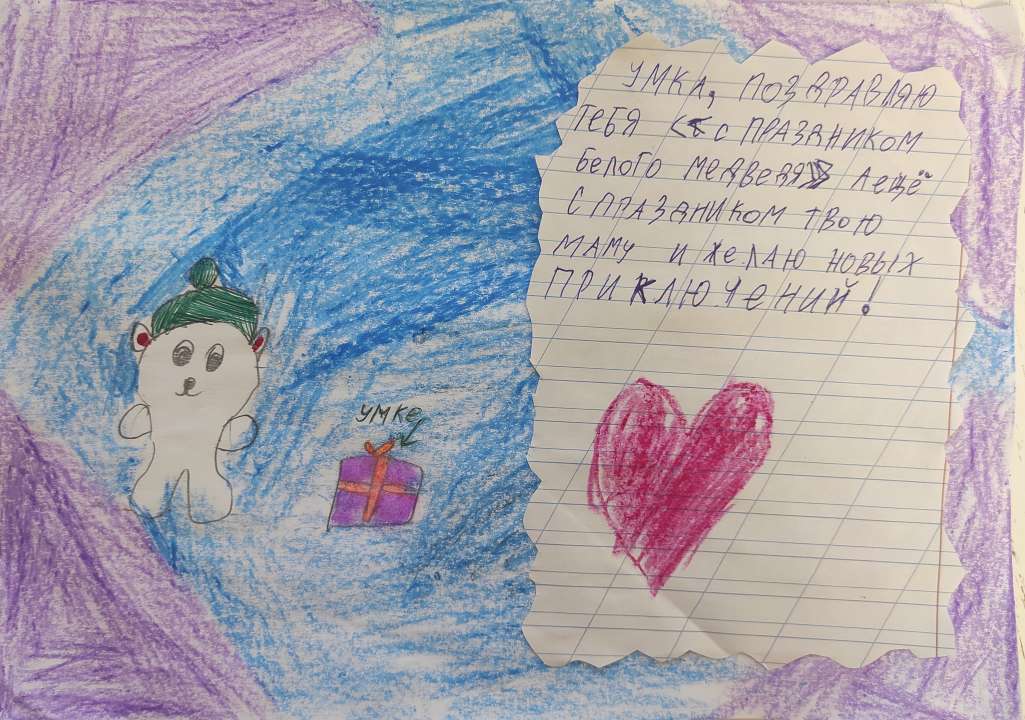 УМКА, ПОЗДРАВЛЯЮ
ТЕБЯ «С ПРАЗДНИКОМ
БЕЛОГО МЕДВЕДЯ» А ЕЩЁ
С ПРАЗДНИКОМ ТВОЮ
МАМУ И ЖЕЛАЮ НОВЫХ
ПРИКЛЮЧЕНИЙ!
УМКЕ